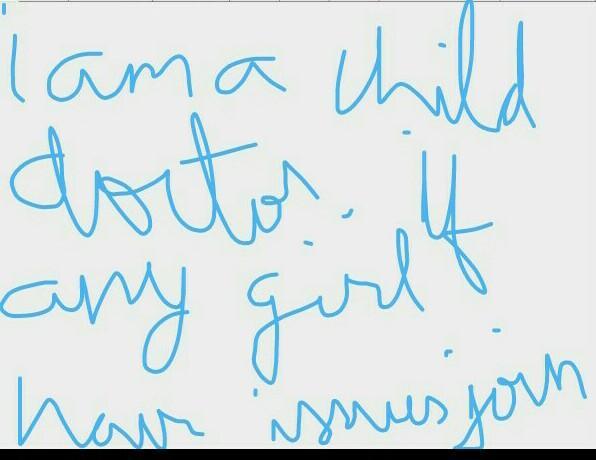 I am a child
doctor. If
any girl
have issues join